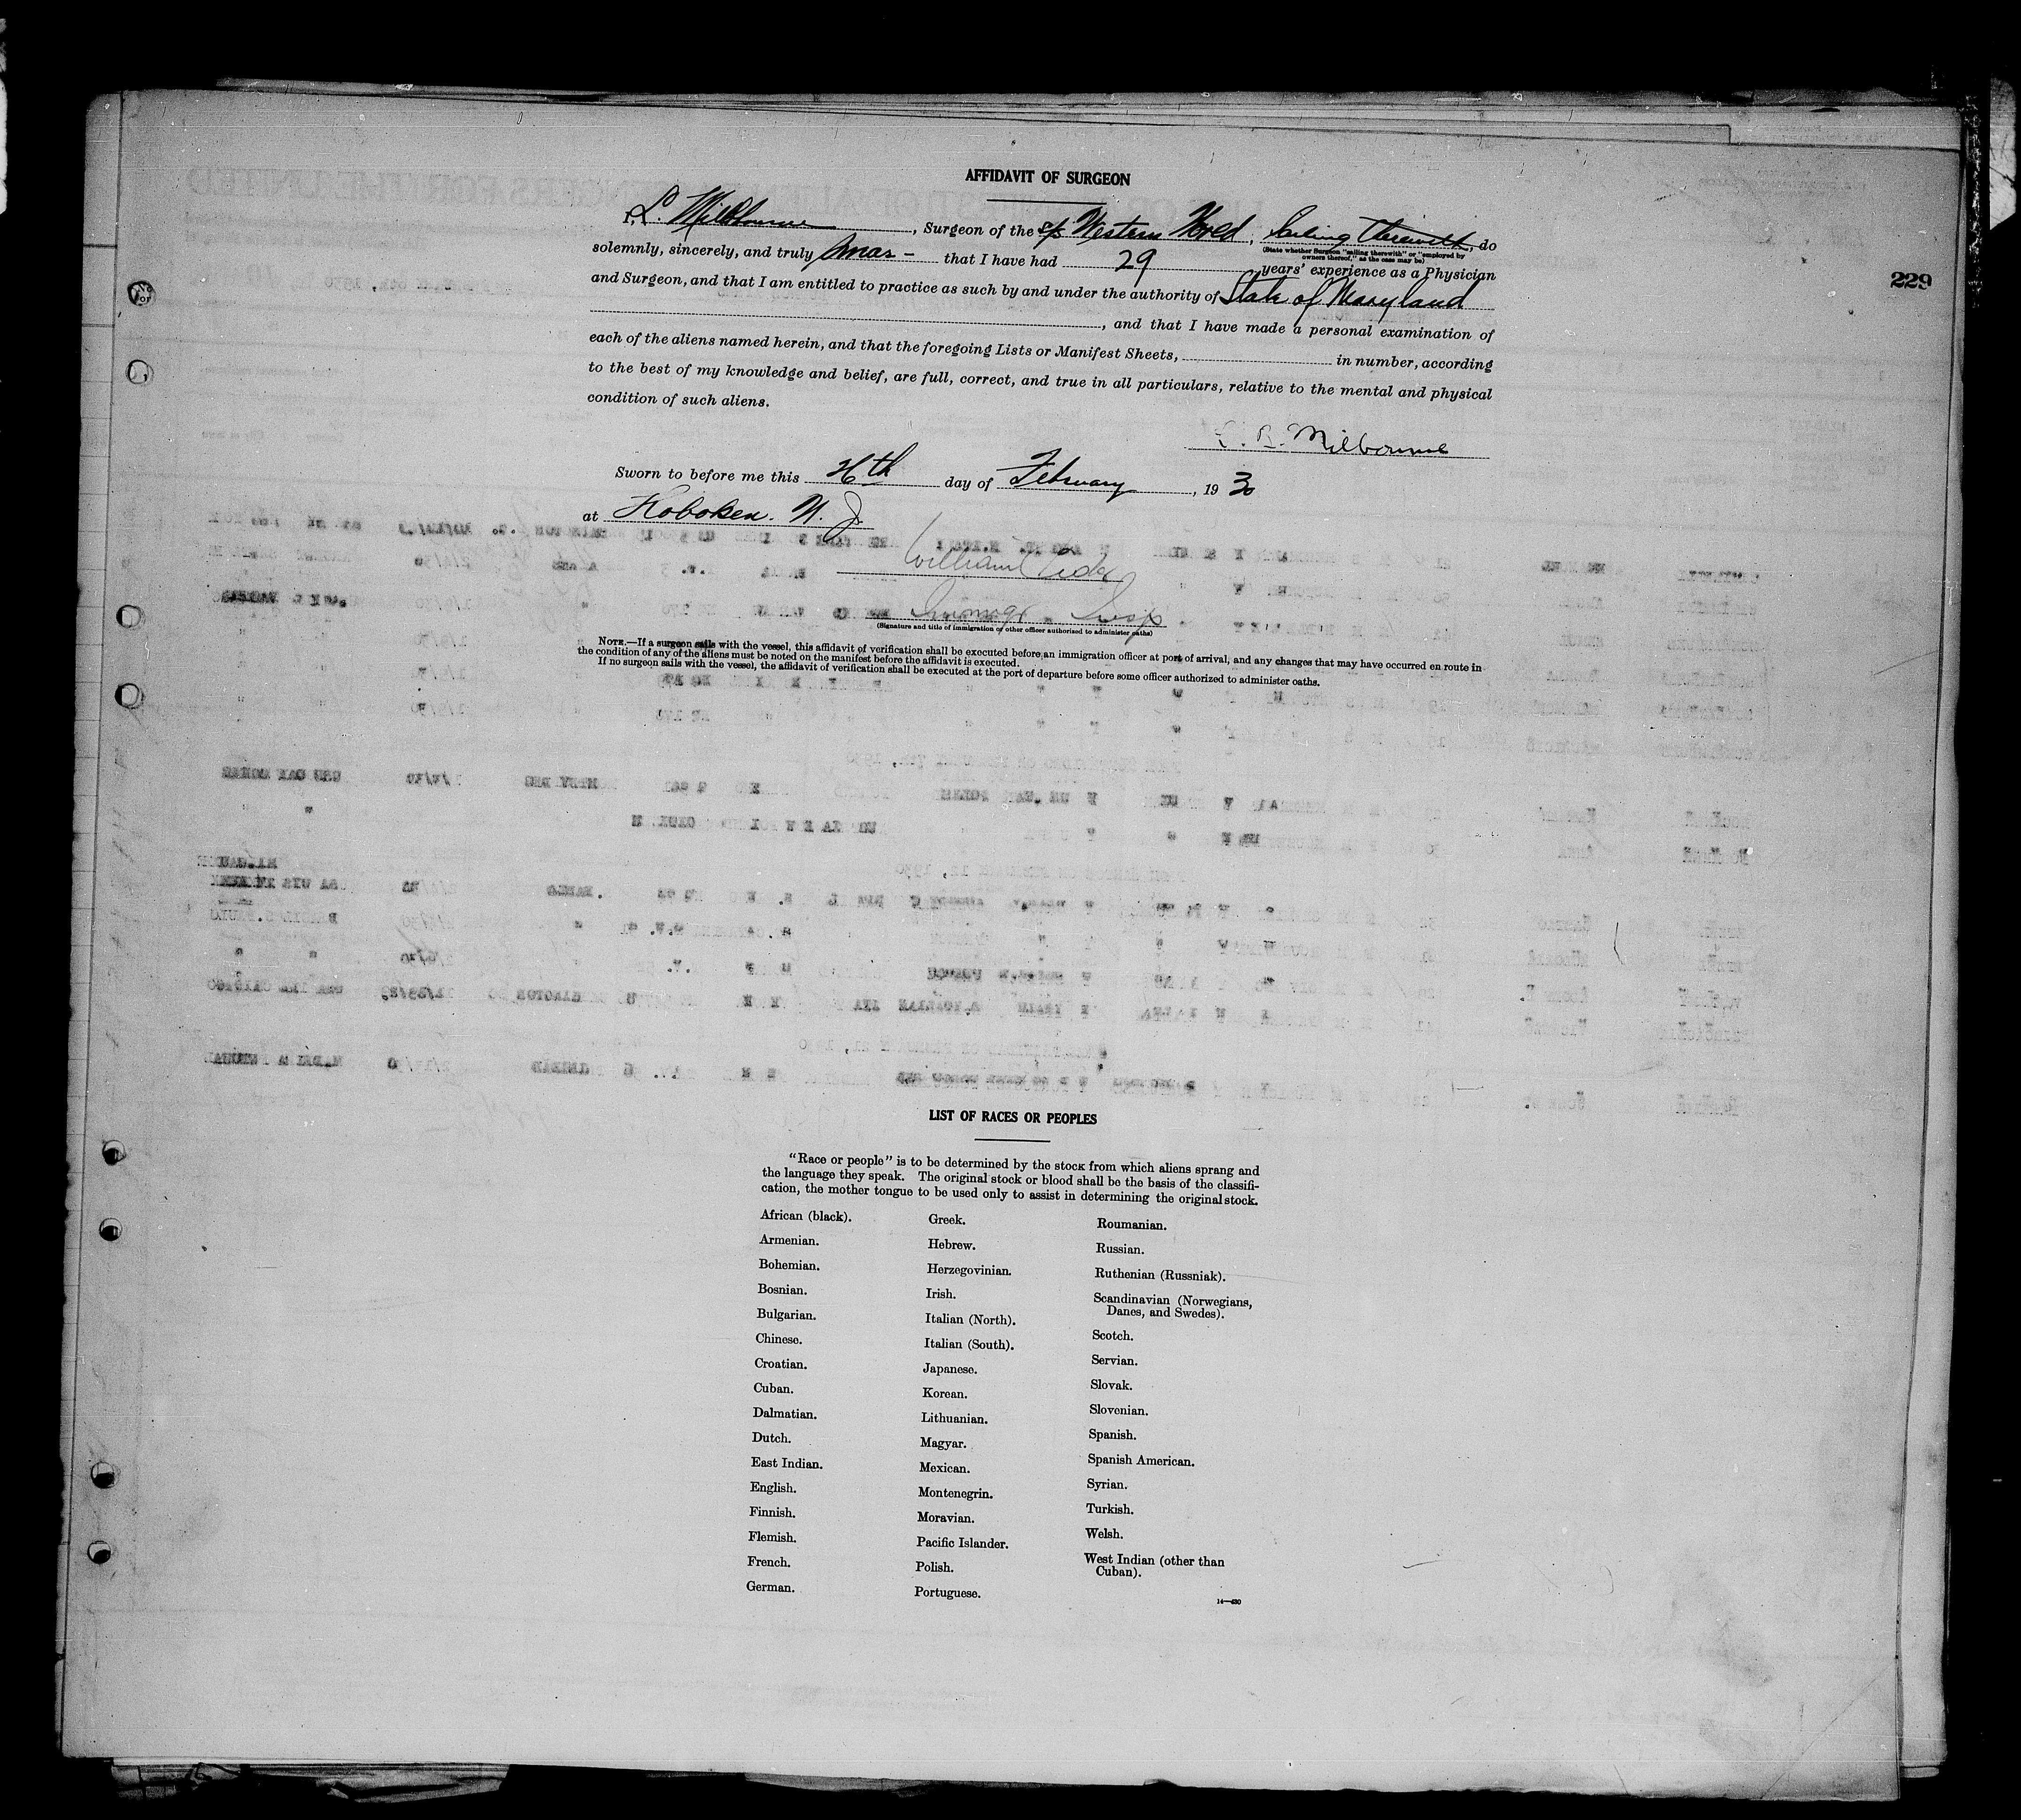 AFFIDAVIT OF SURGEON
229
I, L. Milbourne, Surgeon of the s/s Western World, Sailing Therewith, do
(State whether Surgeon "sailing therewith" or "employed by
owners thereof," as the case may be)
solemnly, sincerely, and truly that I have had 29 years' experience as a Physician
and Surgeon, and that I am entitled to practice as such by and under the authority of State of Maryland
, and that I have made a personal examination of
each of the aliens named herein, and that the foregoing Lists or Manifest Sheets, in number, according
to the best of my knowledge and belief, are full, correct, and true in all particulars, relative to the mental and physical
condition of such aliens.
L. B. Milbourne
Sworn to before me this 26th day of February, 1930
at Hoboken. N. J.
William
Immigr. Insp
(Signature and title of immigration or other officer authorized to administer oaths)
NOTE.—If a surgeon sails with the vessel, this affidavit of verification shall be executed before an immigration officer at port of arrival, and any changes that may have occurred en route in
the condition of any of the aliens must be noted on the manifest before the affidavit is executed.
If no surgeon sails with the vessel, the affidavit of verification shall be executed at the port of departure before some officer authorized to administer oaths.
LIST OF RACES OR PEOPLES
"Race or people" is to be determined by the stock from which aliens sprang and
the language they speak. The original stock or blood shall be the basis of the classifi-
cation, the mother tongue to be used only to assist in determining the original stock.
African (black).
Armenian.
Bohemian.
Bosnian.
Bulgarian.
Chinese.
Croatian.
Cuban.
Dalmatian.
Dutch.
East Indian.
English.
Finnish.
Flemish.
French.
German.
Greek.
Hebrew.
Herzegovinian.
Irish.
Italian (North).
Italian (South).
Japanese.
Korean.
Lithuanian.
Magyar.
Mexican.
Montenegrin.
Moravian.
Pacific Islander.
Polish.
Portuguese.
Roumanian.
Russian.
Ruthenian (Russniak).
Scandinavian (Norwegians,
Danes, and Swedes).
Scotch.
Servian.
Slovak.
Slovenian.
Spanish.
Spanish American.
Syrian.
Turkish.
Welsh.
West Indian (other than
Cuban).
14—430